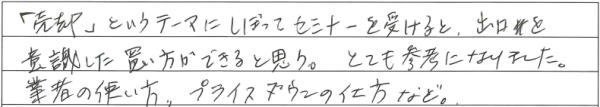 「売却」というテーマにしぼってセミナーを受けると、出口を
意識した買い方ができると思う。とても参考になりました。
業者の使い方、プライスダウンの仕方など。